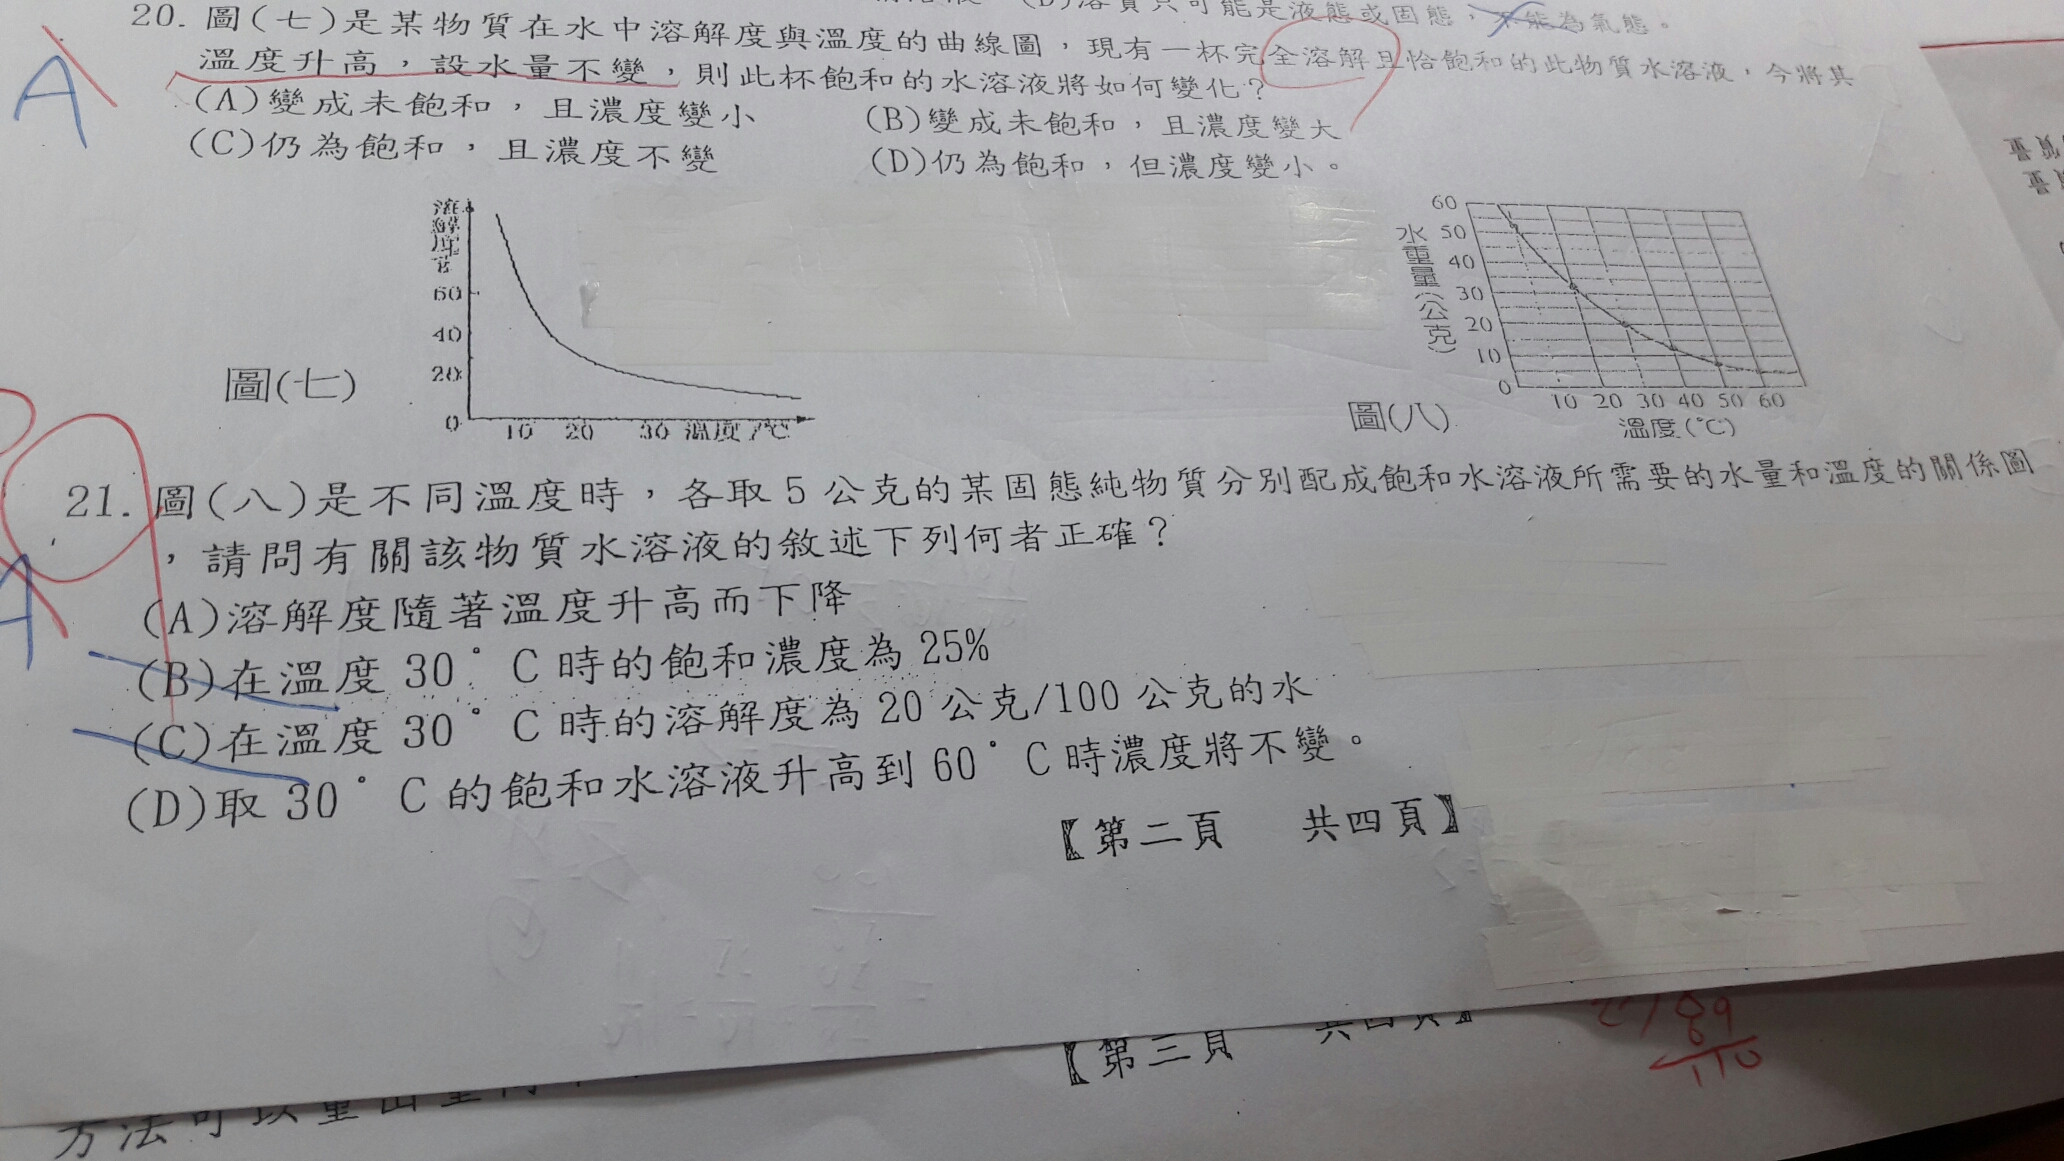 (D)溶質只可能是液態或固態，不能為氣態。
20. 圖(七)是某物質在水中溶解度與溫度的曲線圖，現有一杯完全溶解且恰飽和的此物質水溶液，今將其
溫度升高，設水量不變，則此杯飽和的水溶液將如何變化？
A
(A)變成未飽和，且濃度變小 (B)變成未飽和，且濃度變大
(C)仍為飽和，且濃度不變 (D)仍為飽和，但濃度變小。
溶解度
60
40
20
0
10 20 30 溫度/℃
圖(七)
水重量(公克)
60
50
40
30
20
10
0
10 20 30 40 50 60
溫度(℃)
圖(八)
21. 圖(八)是不同溫度時，各取5公克的某固態純物質分別配成飽和水溶液所需要的水量和溫度的關係圖
，請問有關該物質水溶液的敘述下列何者正確？
A
(A)溶解度隨著溫度升高而下降
(B)在溫度30°C時的飽和濃度為25%
(C)在溫度30°C時的溶解度為20公克/100公克的水
(D)取30°C的飽和水溶液升高到60°C時濃度將不變。
【第二頁 共四頁】
【第三頁 共四頁】
89
110
方法可以量出